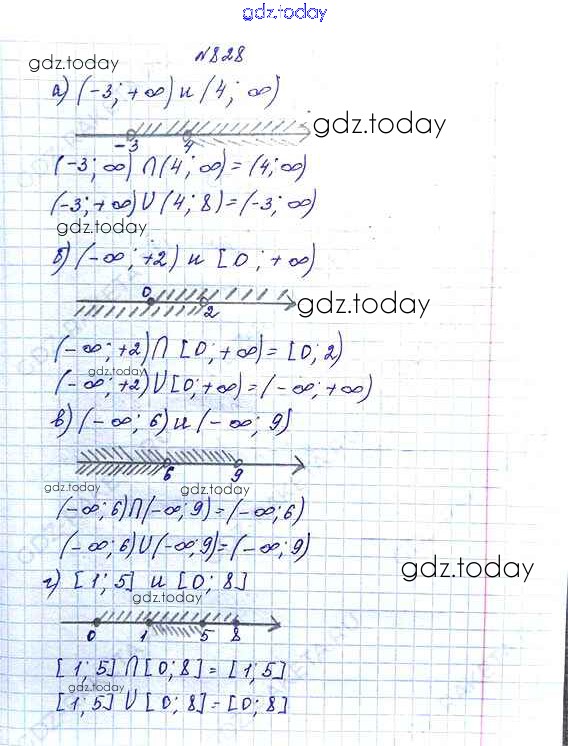 gdz.today
№828
gdz.today
а) (-3; +∞) и (4; ∞)
gdz.today
-3 4
(-3; ∞) ∩ (4; ∞) = (4; ∞)
(-3; +∞) U (4; 8) = (-3; ∞)
gdz.today
б) (-∞; +2) и [0; +∞)
0 2
gdz.today
(-∞; +2) ∩ [0; +∞) = [0; 2)
gdz.today
(-∞; +2) U [0; +∞) = (-∞; +∞)
в) (-∞; 6) и (-∞; 9)
6 9
gdz.today gdz.today
(-∞; 6) ∩ (-∞; 9) = (-∞; 6)
(-∞; 6) U (-∞; 9) = (-∞; 9)
gdz.today
г) [1; 5] и [0; 8]
gdz.today
0 1 5 8
[1; 5] ∩ [0; 8] = [1; 5]
gdz.today
[1; 5] U [0; 8] = [0; 8]